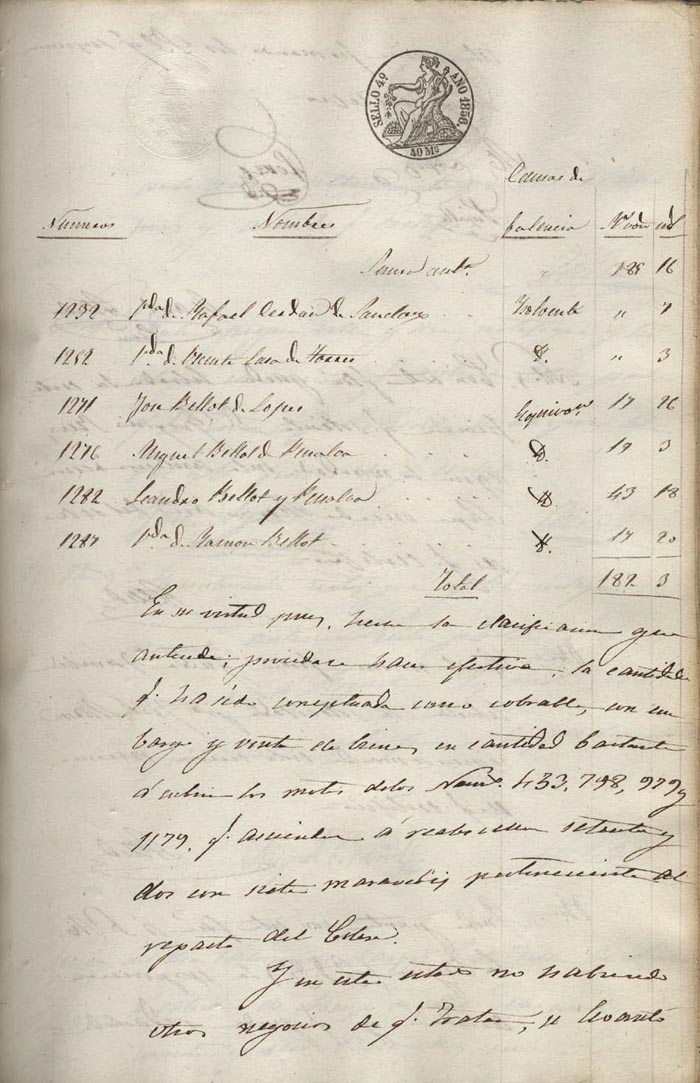 SELLO 4º AÑO 1856.
40 Ms
Causas de
Numeros Nombres falencia Rs von ms
Suma antr. " 185 16
1232 Vda de Rafael de Sanchez Ynsolvente " 7
1252 Vda de Vicente de Torres d. " 3
1271 Jose Bellot de Lopez Equivocn. 17 26
1276 Miguel Bellot de Penalva d. 19 3
1282 Leandro Bellot y Penalva d. 43 18
1287 Vda de Ramon Bellot d. 17 20
Total 182 3
En su virtud pues, hecha la clasificacion que
antecede; procedase hacer efectiva, la cantidad
q. ha sido conceptuada como cobrable, con em
bargo y venta de bienes en cantidad bastante
á cubrir las cuotas de los Nums. 433, 798, 979 y
1179, q. ascienden á reales vellon setenta y
dos con siete maravedis perteneciente al
reparto del
Y en este estado no habiendo
otros negocios de q. tratar, se levantó